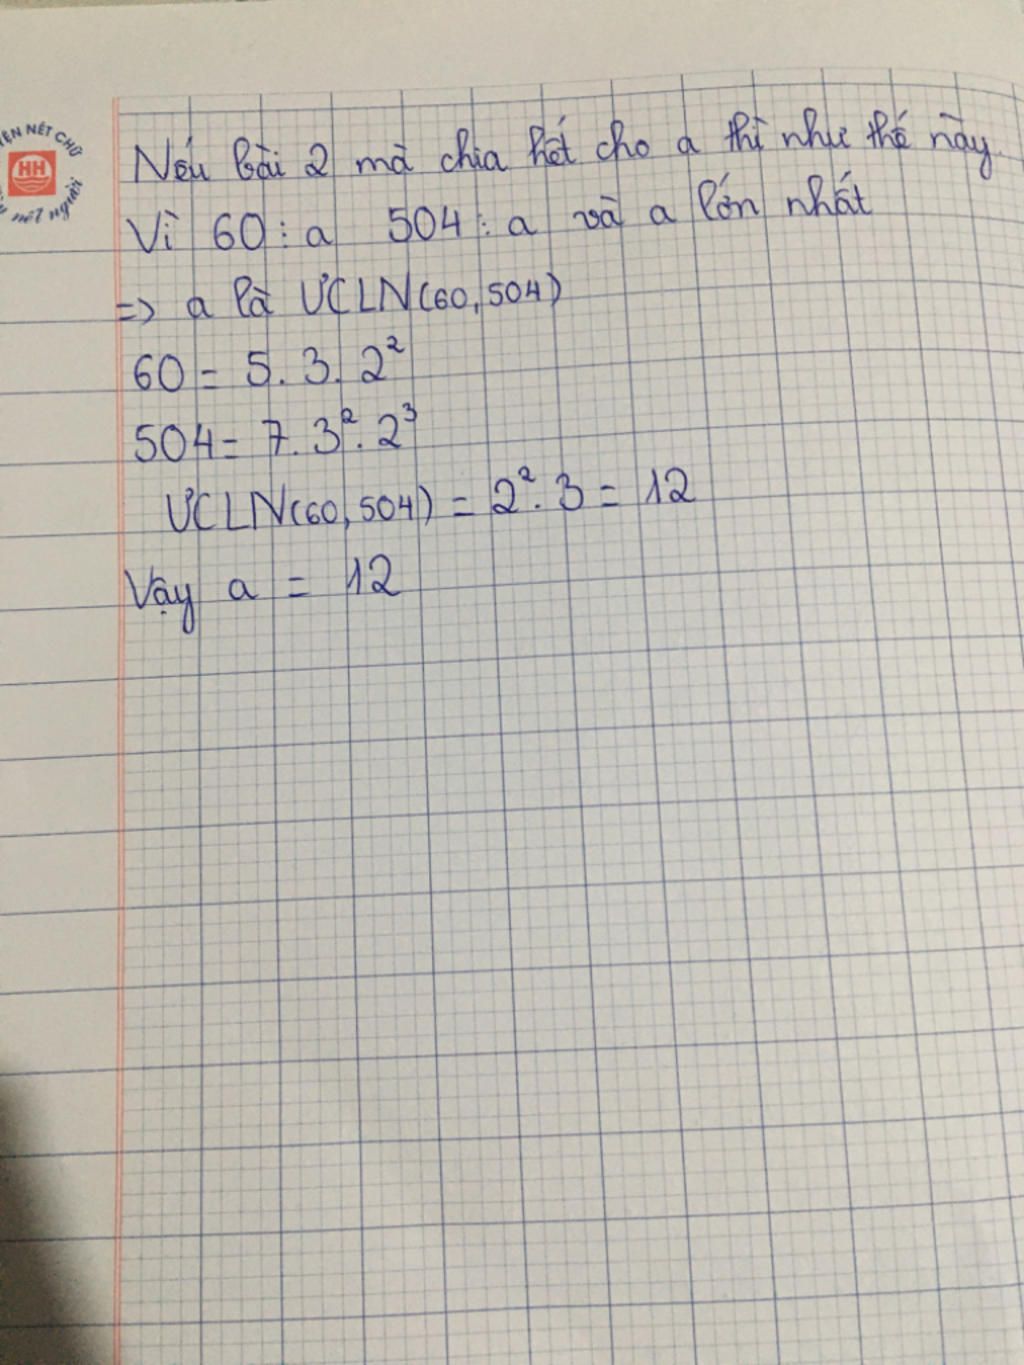 ỆN NÉT CHỮ
HH
nét người
Nếu bài 2 mà chia hết cho a thì như thế này.
Vì 60 ⋮ a 504 ⋮ a và a lớn nhất
=> a là ƯCLN(60,504)
60 = 5. 3. 2²
504 = 7. 3². 2³
ƯCLN(60,504) = 2². 3 = 12
Vậy a = 12